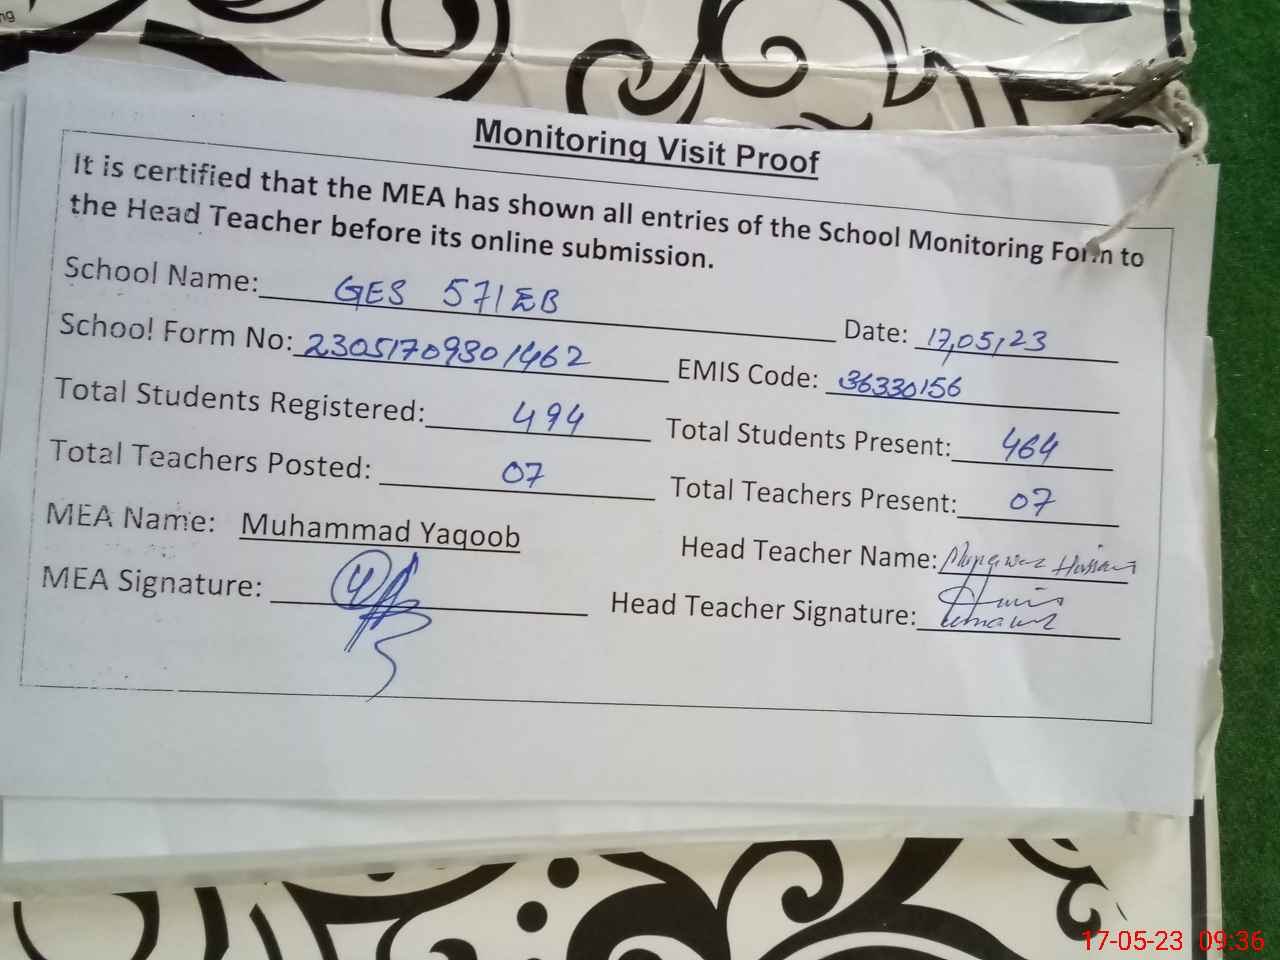 ng
Monitoring Visit Proof
It is certified that the MEA has shown all entries of the School Monitoring Form to
the Head Teacher before its online submission.
School Name: GES 571EB Date: 17,05,23
School Form No: 23051709301462 EMIS Code: 36330156
Total Students Registered: 494 Total Students Present: 464
Total Teachers Posted: 07 Total Teachers Present: 07
MEA Name: Muhammad Yaqoob Head Teacher Name: Hussain
MEA Signature: Head Teacher Signature:
17-05-23 09:36